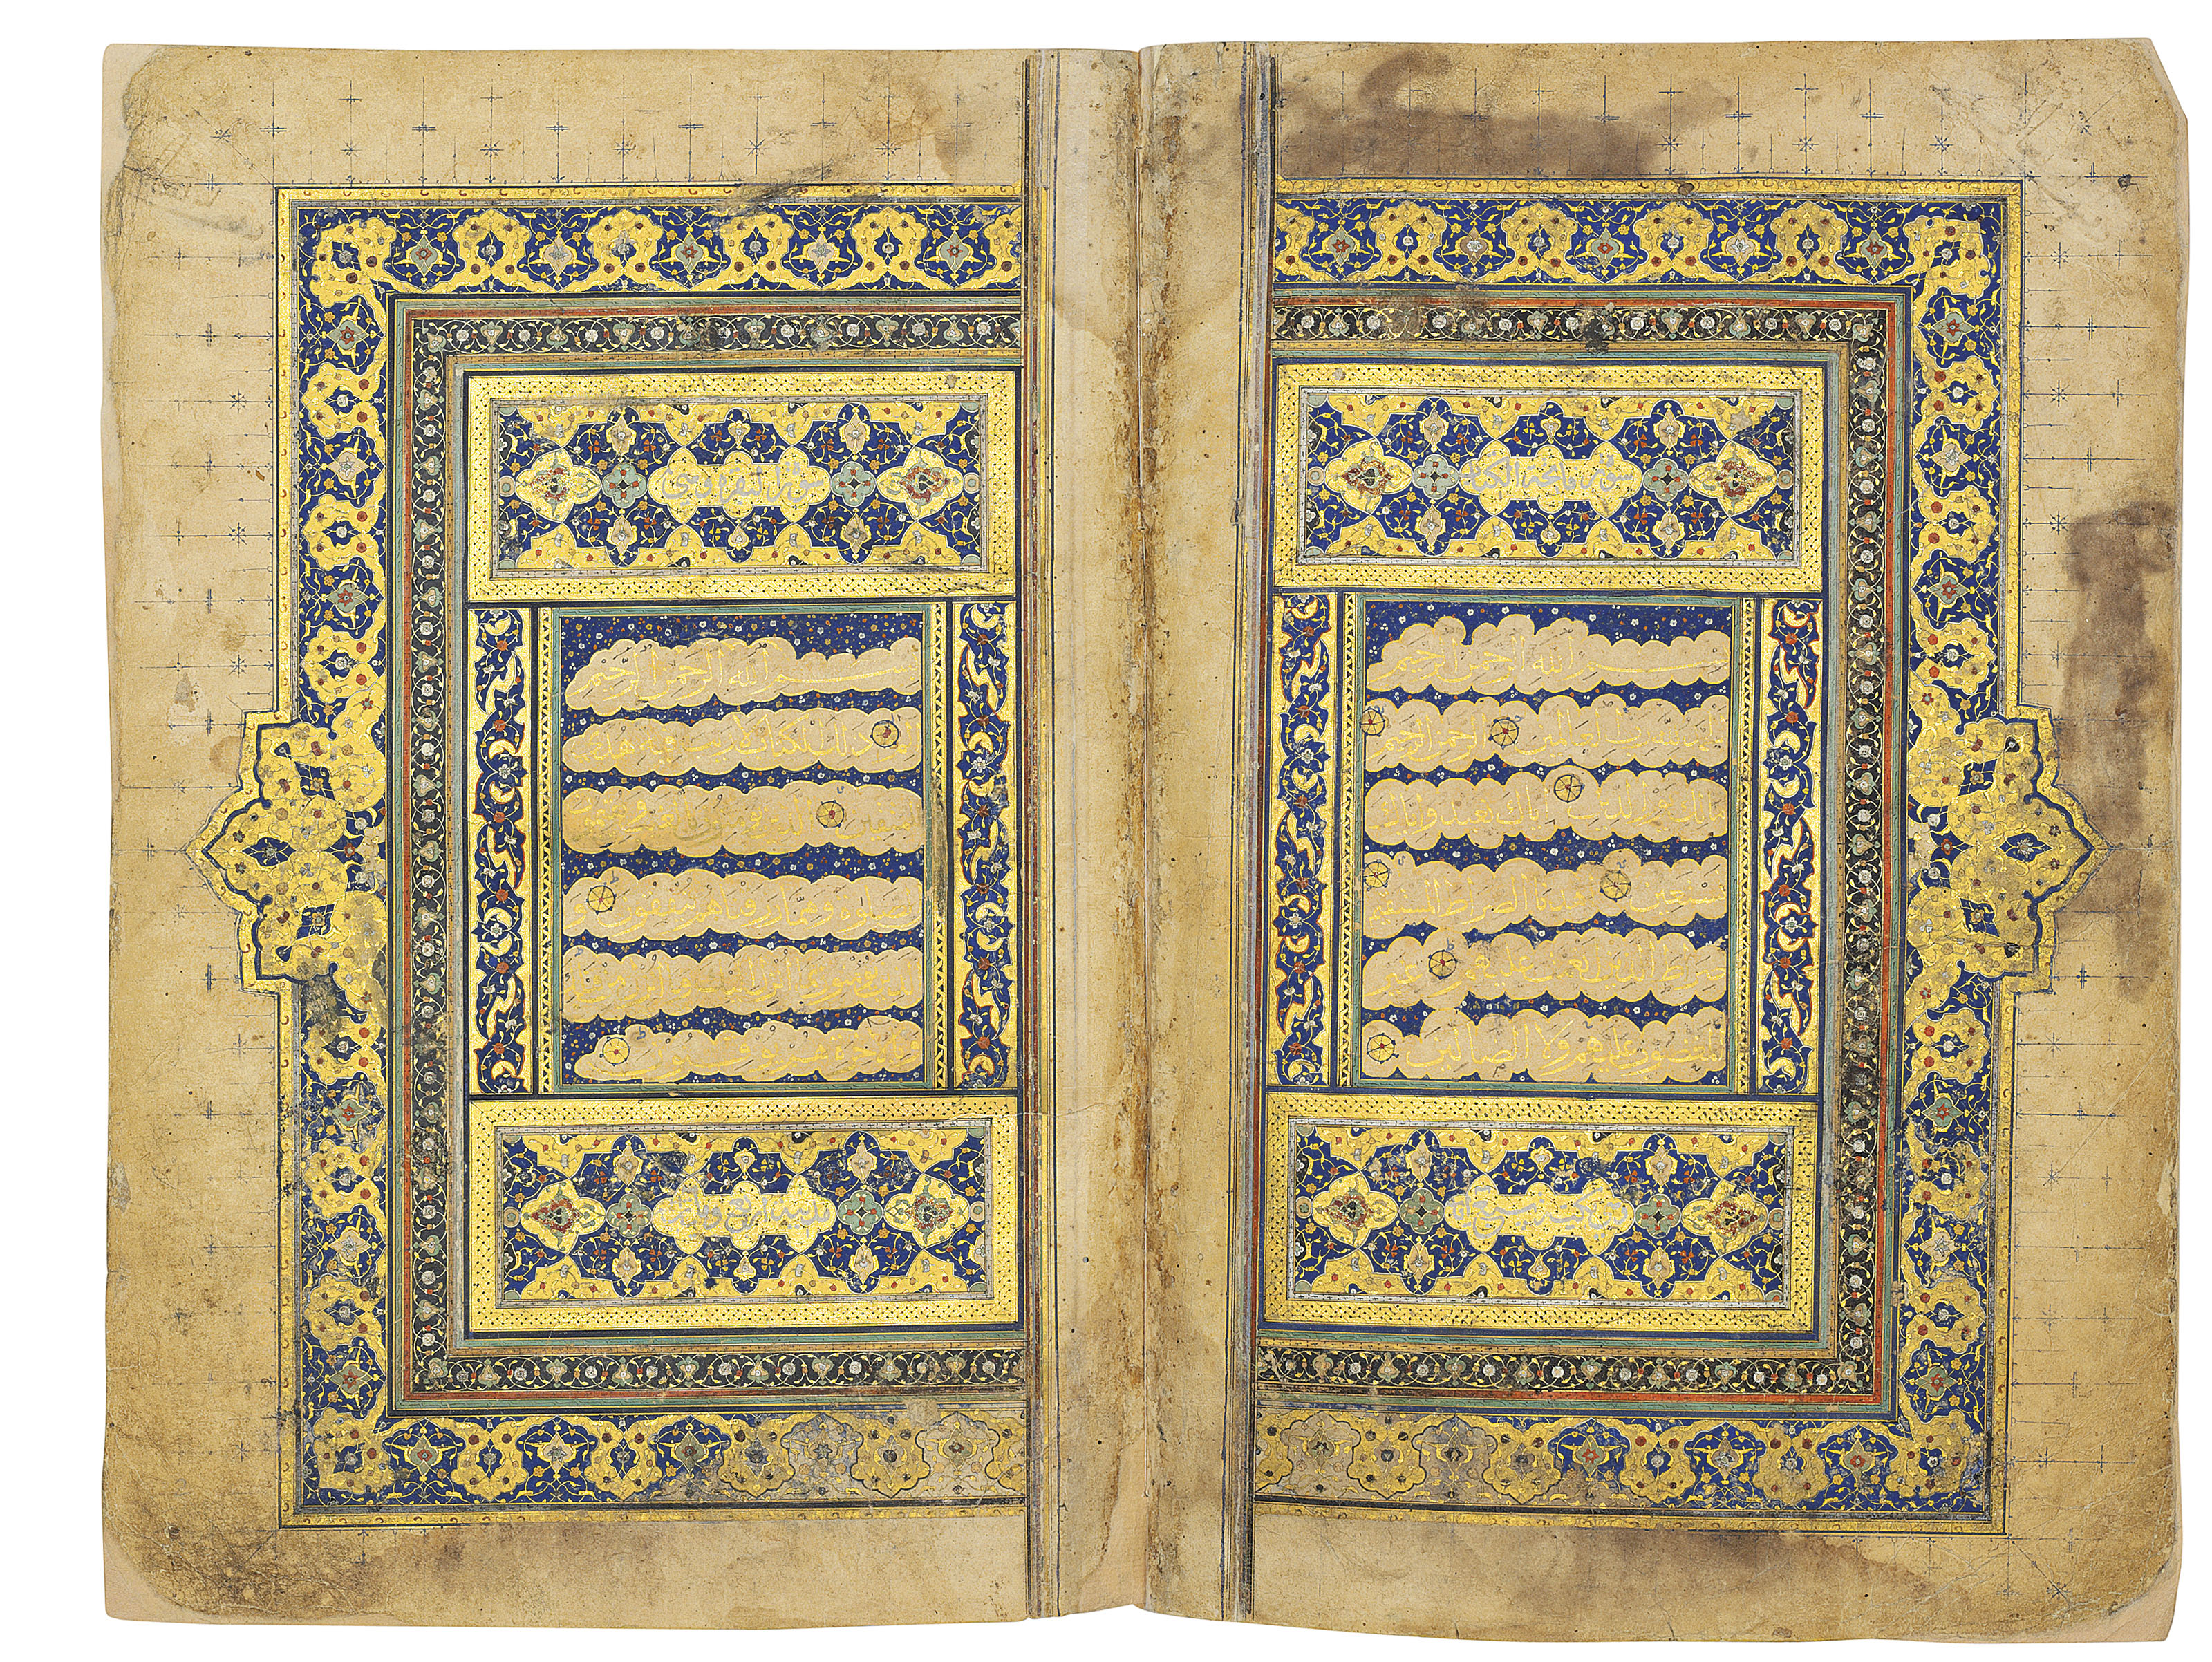 سورة فاتحة الكتاب
بسم الله الرحمن الرحيم
الحمد لله رب العالمين الرحمن الرحيم
مالك يوم الدين اياك نعبد واياك
نستعين اهدنا الصراط المستقيم
صراط الذين انعمت عليهم غير
المغضوب عليهم ولا الضالين
سبع
سورة البقرة وهي
بسم الله الرحمن الرحيم
الم ذلك الكتاب لا ريب فيه هدى
للمتقين الذين يؤمنون بالغيب ويقيمون
الصلوة ومما رزقناهم ينفقون و
الذين يؤمنون بما انزل اليك وما انزل من
وبالاخرة هم يوقنون